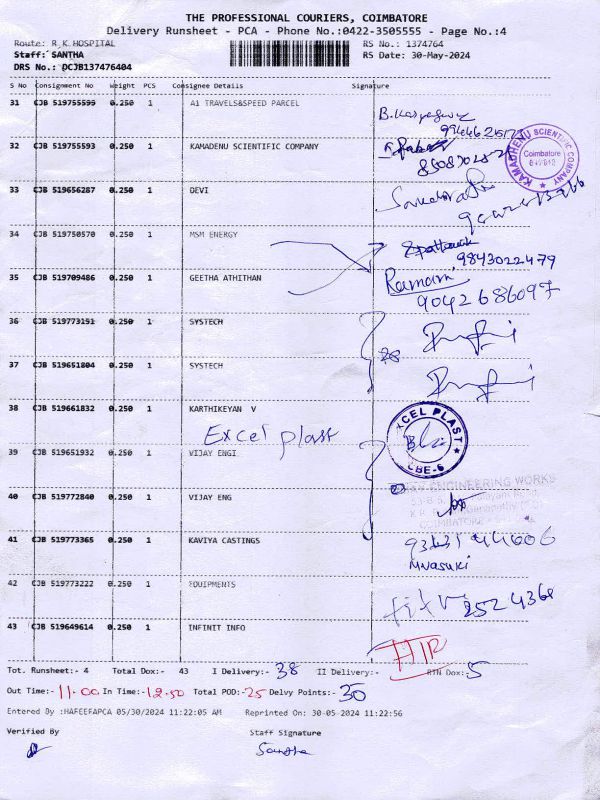 THE PROFESSIONAL COURIERS, COIMBATORE
Delivery Runsheet - PCA - Phone No.:0422-3505555 - Page No.:4
Route: R.K.HOSPITAL
RS No.: 1374764
Staff: SANTHA
RS Date: 30-May-2024
DRS No.: DCJB137476404
S No Consignment No Weight PCS Consignee Details Signature
31 CJB 519755599 0.250 1 A1 TRAVELS&SPEED PARCEL
32 CJB 519755593 0.250 1 KAMADENU SCIENTIFIC COMPANY
KAMADHENU SCIENTIFIC COMPANY
Coimbatore
33 CJB 519656287 0.250 1 DEVI
34 CJB 519750570 0.250 1 MSM ENERGY
9843022479
35 CJB 519709486 0.250 1 GEETHA ATHITHAN
Ramani
9042686097
36 CJB 519773151 0.250 1 SYSTECH
37 CJB 519651804 0.250 1 SYSTECH
38 CJB 519661832 0.250 1 KARTHIKEYAN V
Excel plast
XCEL PLAST
CBE-6
39 CJB 519651932 0.250 1 VIJAY ENGI
40 CJB 519772840 0.250 1 VIJAY ENG
ENGINEERING WORKS
41 CJB 519773365 0.250 1 KAVIYA CASTINGS
42 CJB 519773222 0.250 1 EQUIPMENTS
2524368
43 CJB 519649614 0.250 1 INFINIT INFO
Tot. Runsheet:- 4 Total Dox:- 43 I Delivery:- 38 II Delivery:- RTN Dox:- 5
Out Time:- 11.00 In Time:- 12.50 Total POD:- 25 Delvy Points:- 30
Entered By :HAFEEFAPCA 05/30/2024 11:22:05 AM Reprinted On: 30-05-2024 11:22:56
Verified By Staff Signature
Santha